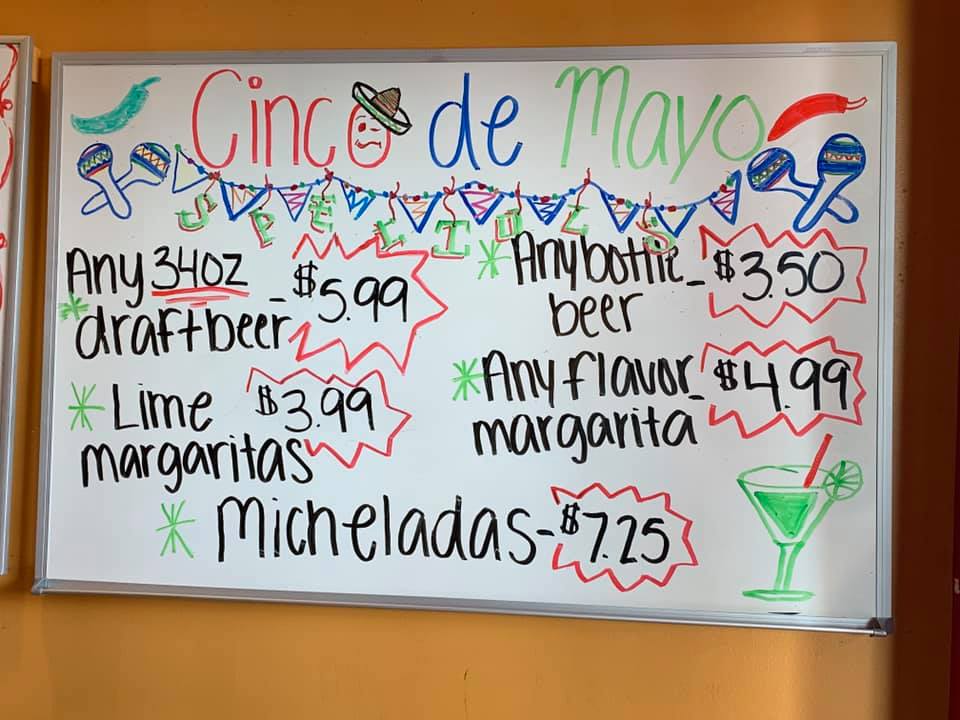 Cinco de Mayo
SPECIALS
Any 34oz
draft beer - $5.99
Lime
margaritas $3.99
Any bottle
beer - $3.50
Any flavor
margarita - $4.99
Micheladas - $7.25